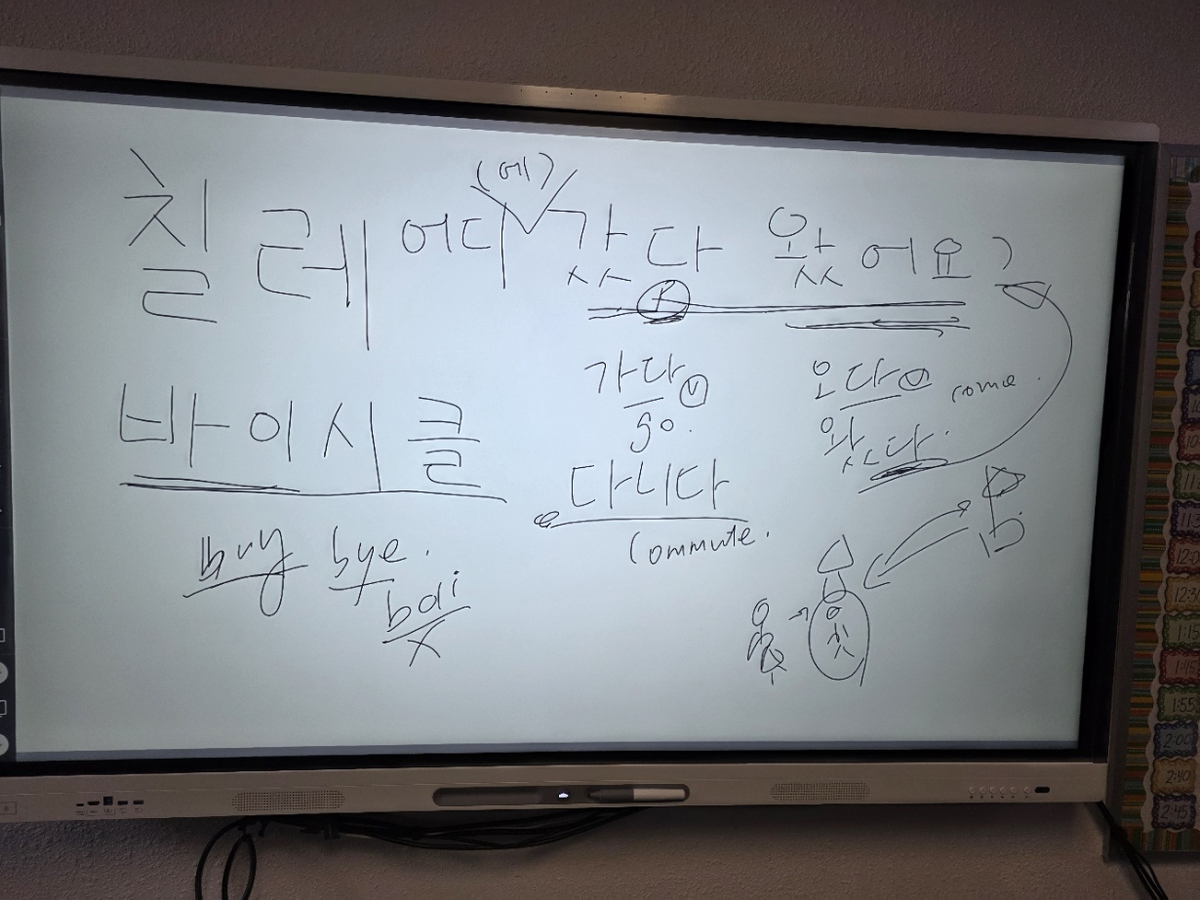 칠레 어디(에) 갔다 왔어요?
P
가다 ⓥ 오다 ⓥ come.
go. 왔다.
바이시클 다니다
commute.
buy bye.
bai
X
1:15
1:45
1:55
2:00
2:40
2:45